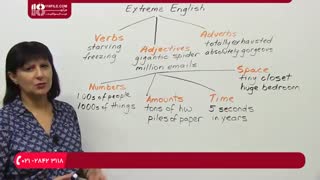 FILE
YAFILE.COM
Extreme English
Verbs
starving
freezing
Adjectives
gigantic spider
million emails
Adverbs
totally exhausted
absolutely gorgeous
Space
tiny closet
huge bedroom
Numbers
100s of people
1000s of things
Amounts
tons of hw
piles of paper
Time
5 seconds
in years
۰۲۱-۲۸۴۲ ۳۹۱۸